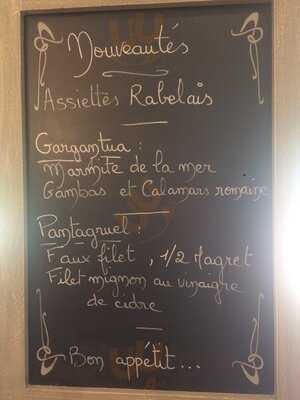 Nouveautés
Assiettes Rabelais
Gargantua :
Marmite de la mer
Gambas et Calamars romaine
Pantagruel :
Faux filet , 1/2 Magret
Filet mignon au vinaigre
de cidre
Bon appétit...